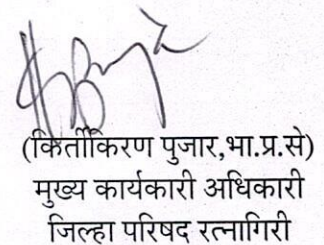 (किर्तीकिरण पुजार,भा.प्र.से)
मुख्य कार्यकारी अधिकारी
जिल्हा परिषद रत्नागिरी